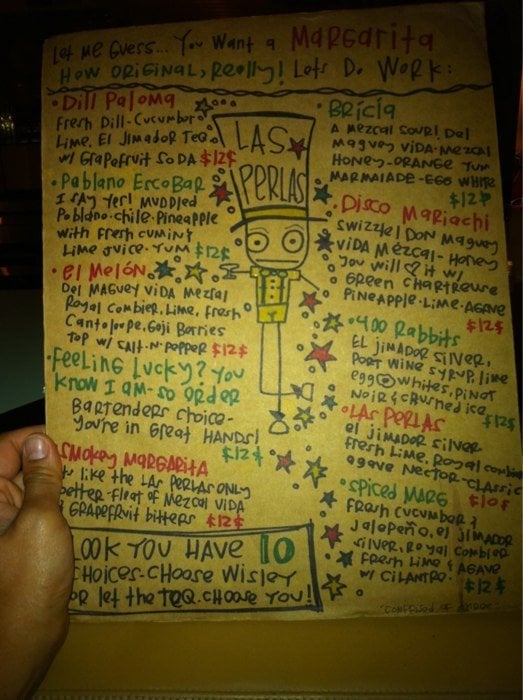 Let Me Guess... You Want a MARGARITA
HOW ORIGINAL, REALLY! Lots Do Work:
• Dill Paloma
Fresh Dill-Cucumber
Lime, El Jimador Teq
w/ Grapefruit Soda $12$
• Poblano EscoBAR
I SAY YES! MUDDLED
Poblano-Chile-Pineapple
with fresh cumin &
Lime Juice-YUM $12$
• el Melón
Del MAGUEY VIDA Mezcal
Royal Combier, Lime, Fresh
Cantaloupe, Goji Berries
Top w/ SALT-N-PePPER $12$
• Feeling Lucky? You
know I AM-SO ORDER
BARTENDERS Choice-
You're in Great HANDS!
$12$
SMOKEY MARGARITA
like the LAS PERLAS ONLY
better-Float of Mezcal VIDA
& GRAPEFRUIT bitters $12$
LOOK YOU HAVE 10
CHOICES-CHOOSE WISLEY
OR let the TEQ. CHOOSE YOU!
LAS
PERLAS
• BRICIA
A Mezcal SOUR! Del
Maguey VIDA-Mezcal
HONEY-ORANGE YUM
MARMALADE-EGG WHITE
$12$
• Disco Mariachi
Swizzle! Don Maguey
VIDA Mezcal-Honey
You will it w/
Green Chartreuse
Pineapple-Lime-Agave
$12$
• 400 Rabbits
EL JIMADOR SILVER,
PORT WINE SYRUP, lime
egg whites, PINOT
NOIR & CRUSHED ice
$12$
• LAS PERLAS
el jimador silver
fresh Lime, Royal combier
agave Nector-CLASSIC
$10$
• Spiced MARG
Fresh cucumber &
Jalapeño, el Jimador
silver, Royal Combier
Fresh Lime & Agave
w/ CILANTRO.
$12$